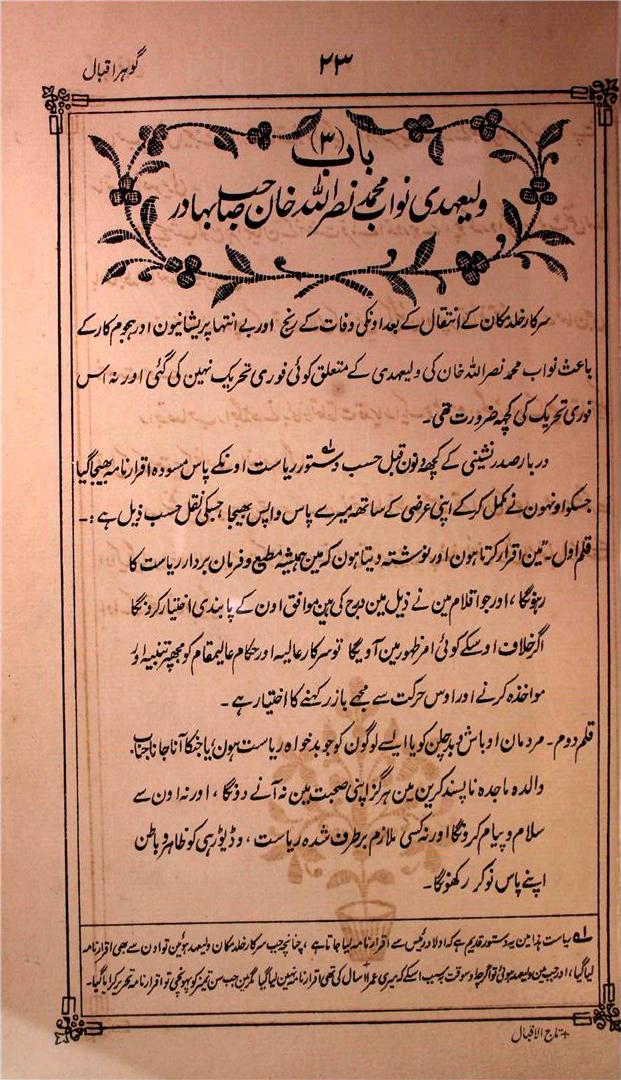 ۲۳
گوہر اقبال
باب (۳)
ولیعہدی نواب محمد نصر اللہ خان صاحب بہادر
سرکار خلد مکان کے انتقال کے بعد اونکی وفات کے رنج اور بے انتہا پریشانیون اور ہجوم کار کے
باعث نواب محمد نصر اللہ خان کی ولیعہدی کے متعلق کوئی فوری تحریک نہین کی گئی اور نہ اس
فوری تحریک کی کچھہ ضرورت تھی۔
دربار صدر نشینی کے کچھہ دنون قبل حسب دستور ریاست اونکے پاس مسودہ اقرارنامہ بھیجا گیا
جسکو اونہون نے مکمل کر کے اپنی عرضی کے ساتھہ میرے پاس واپس بھیجا جسکی نقل حسب ذیل ہے :۔
قلم اول۔ "مین اقرار کرتا ہون اور نوشتہ دیتا ہون کہ مین ہمیشہ مطیع و فرمان بردار ریاست کا
رہونگا ، اور جو اقلام مین نے ذیل مین درج کی ہین موافق اون کے پابندی اختیار کرونگا
اگر خلاف اوسکے کوئی امر ظہور مین آویگا تو سرکار عالیہ اور حکام عالیمقام کو مجھپر تنبیہ اور
مواخذہ کرنے اور اوس حرکت سے مجھے باز رکہنے کا اختیار ہے ۔
قلم دوم۔ مردمان اوباش و بدچلن کو یا ایسے لوگون کو جو بدخواہ ریاست ہون یا جنکا آنا جانا جناب
والدہ ماجدہ ناپسند کرین مین ہرگز اپنی صحبت مین نہ آنے دونگا ، اور نہ اون سے
سلام و پیام کرونگا اور نہ کسی ملازم برطرف شدہ ریاست ، و ڈیوڑہی کو ظاہر و باطن
اپنے پاس نوکر رکہونگا۔
لہ ریاست ہذا مین یہ دستور قدیم ہے کہ اولاد رئیس سے اقرارنامہ لیا جاتا ہے ، چنانچہ جب سرکار خلد مکان ولیعہد ہوئین تو اون سے بھی اقرارنامہ
لیا گیا ، اور جب مین ولیعہد ہوئی تو اگرچہ اوسوقت بسبب اسکے کہ میری عمر ۱۱ سال کی تھی اقرارنامہ نہین لیا گیا لیکن جب سن تمیز کو پہونچی تو اقرارنامہ تحریر کرایا گیا۔
+ تاج الاقبال